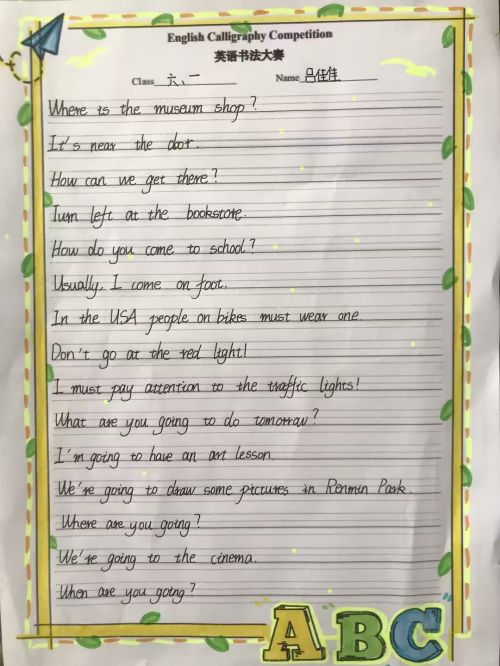 English Calligraphy Competition
英语书法大赛
Class 六、一 Name 吕佳佳
Where is the museum shop?
It's near the door.
How can we get there?
Turn left at the bookstore.
How do you come to school?
Usually, I come on foot.
In the USA people on bikes must wear one.
Don't go at the red light!
I must pay attention to the traffic lights!
What are you going to do tomorrow?
I'm going to have an art lesson.
We're going to draw some pictures in Renmin Park.
Where are you going?
We're going to the cinema.
When are you going?
ABC